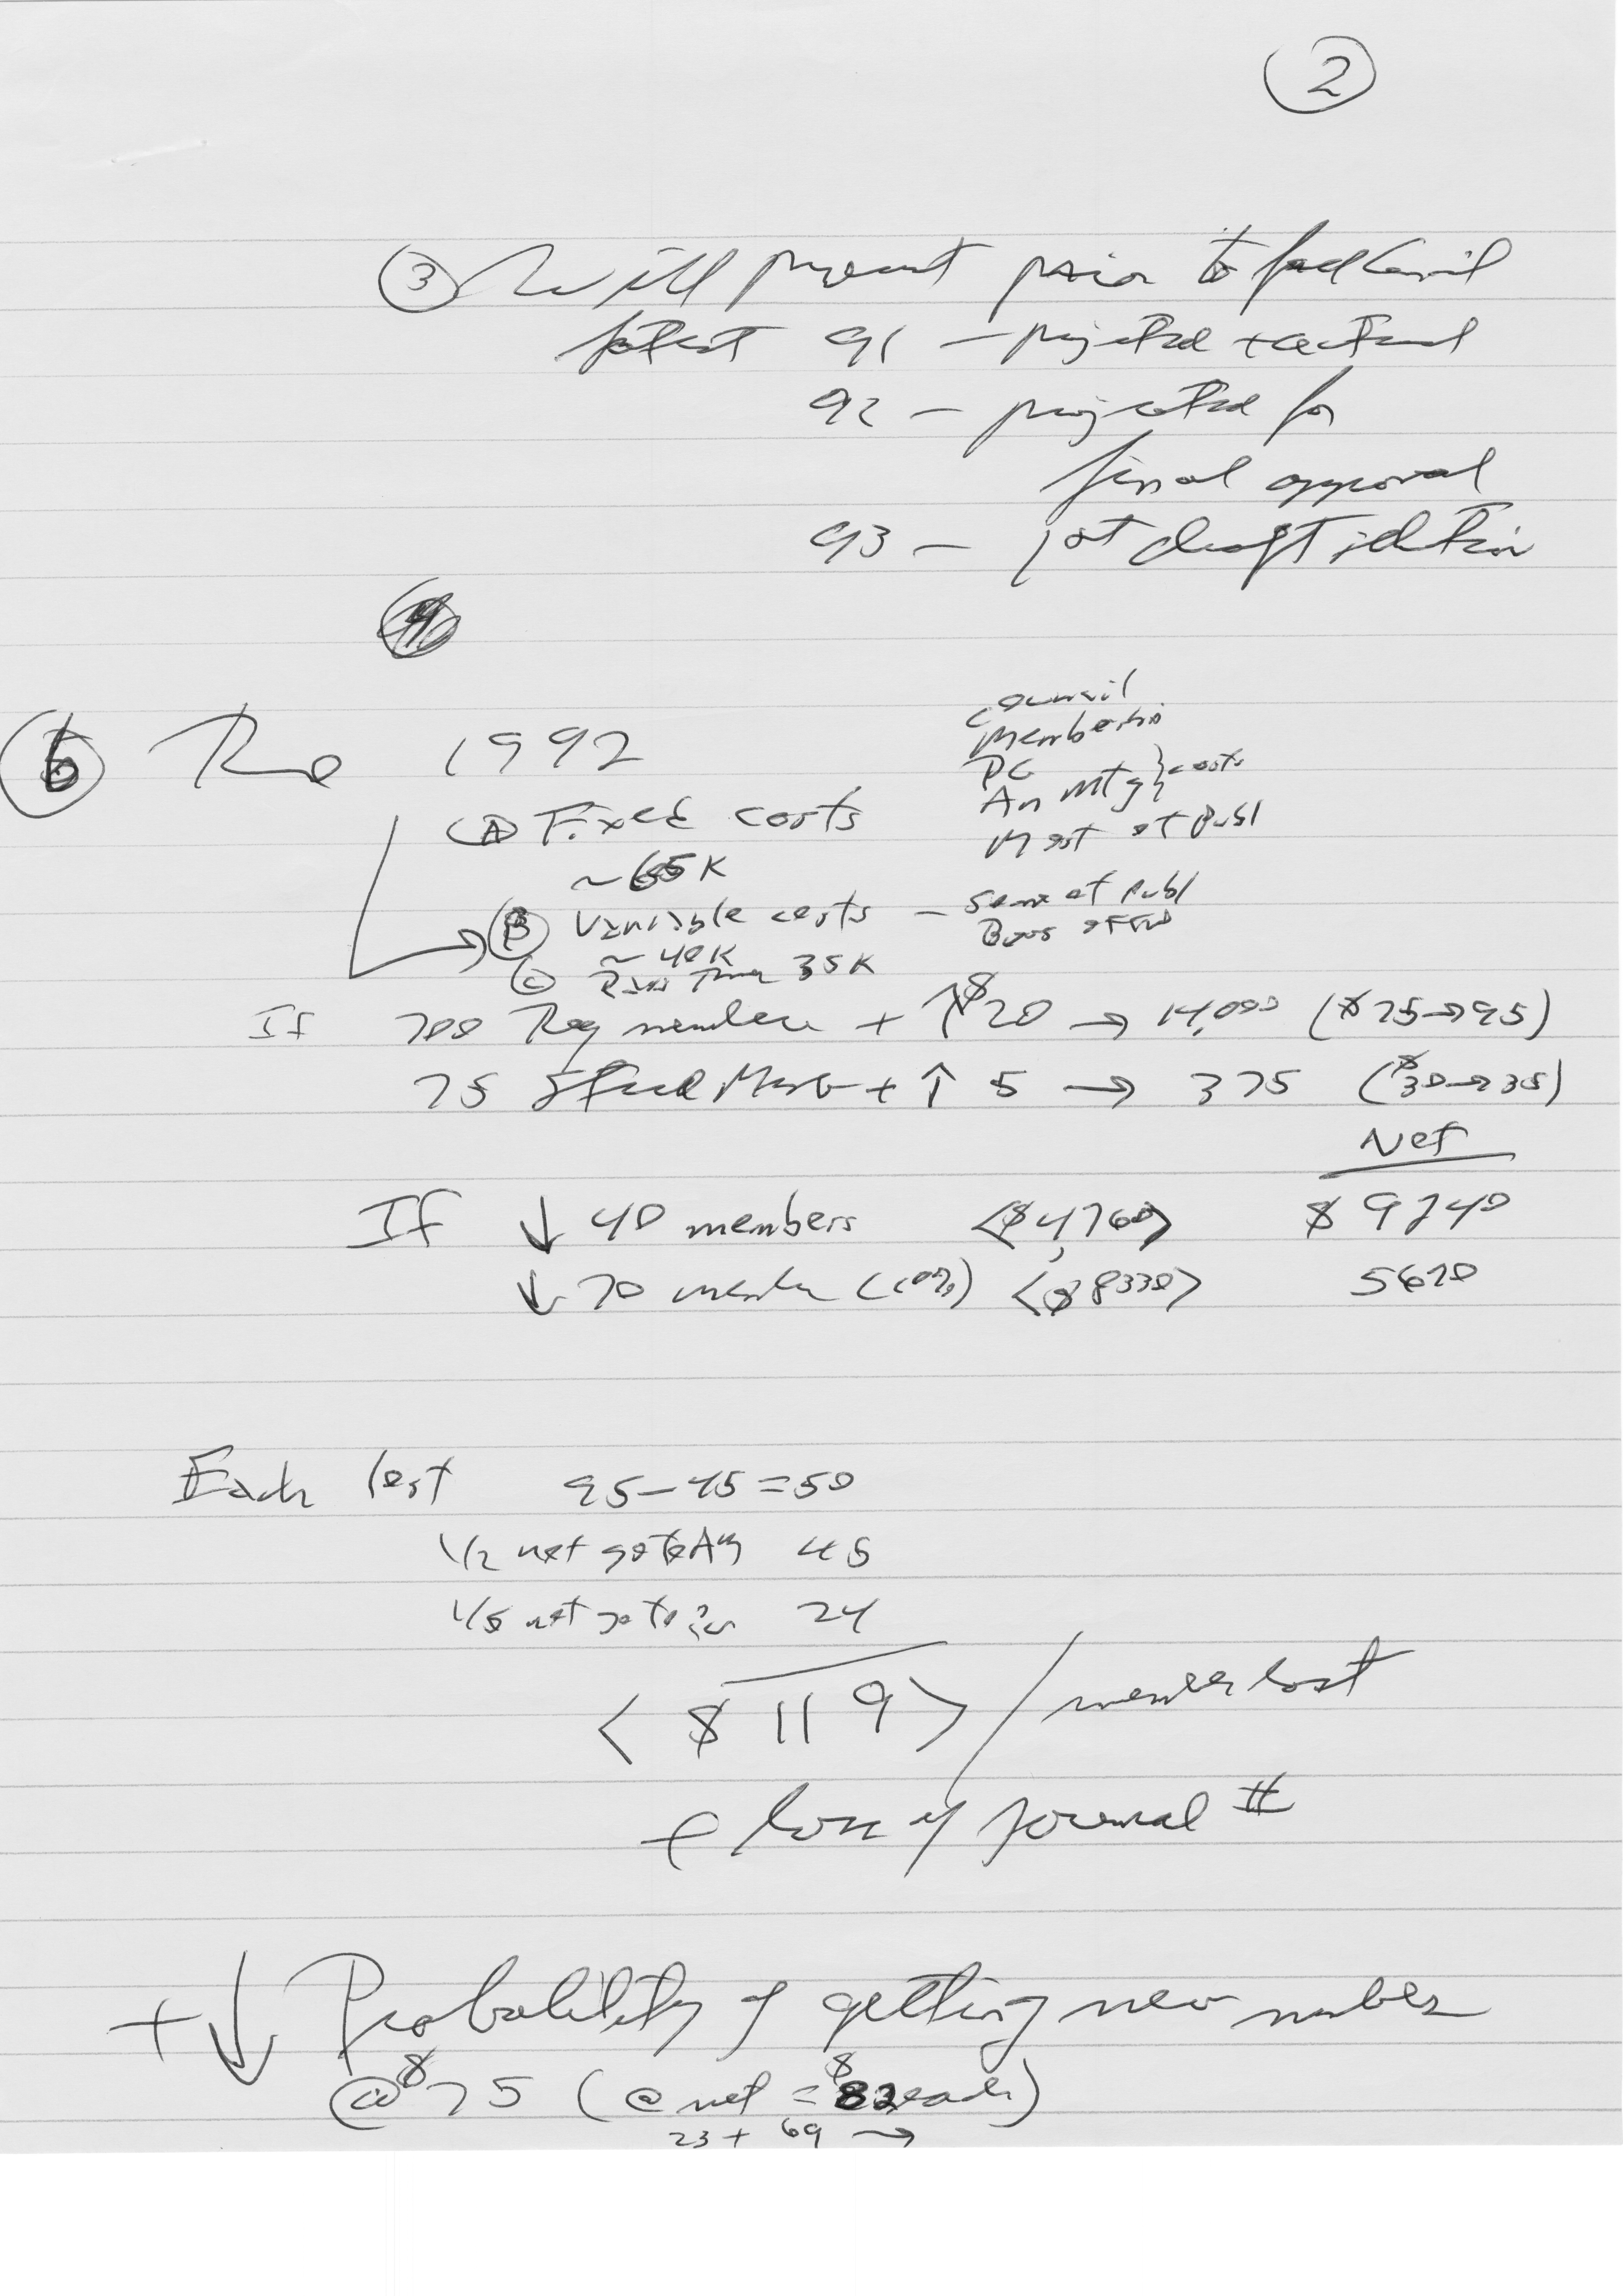 2
③ Will present prior to fall Council
latest 91 – projected + actual
92 – projected for
final approval
93 – 1st draft
6 The 1992
Council
Membership
PC
An Mtg } costs
Most of Publ
(A) Fixed costs
~65K
(B) Variable costs – Some of Publ
Bus Off
~40K
(C) 35K
If 700 Reg members + ↑ $20 → 14,000 ($75→95)
75 Stud Memb + ↑ 5 → 375 ($30→35)
Net
If ↓ 40 members <$4,760> $9240
↓ 70 member (10%) <$8330> 5670
Each lost 95–45=50
1/2 not go to AM 45
1/5 not go to 24
<$119> / member lost
+ loss of journal #
+ ↓ Probability of getting new member
@ $75 (@ net = $82 each)
23 + 69 →